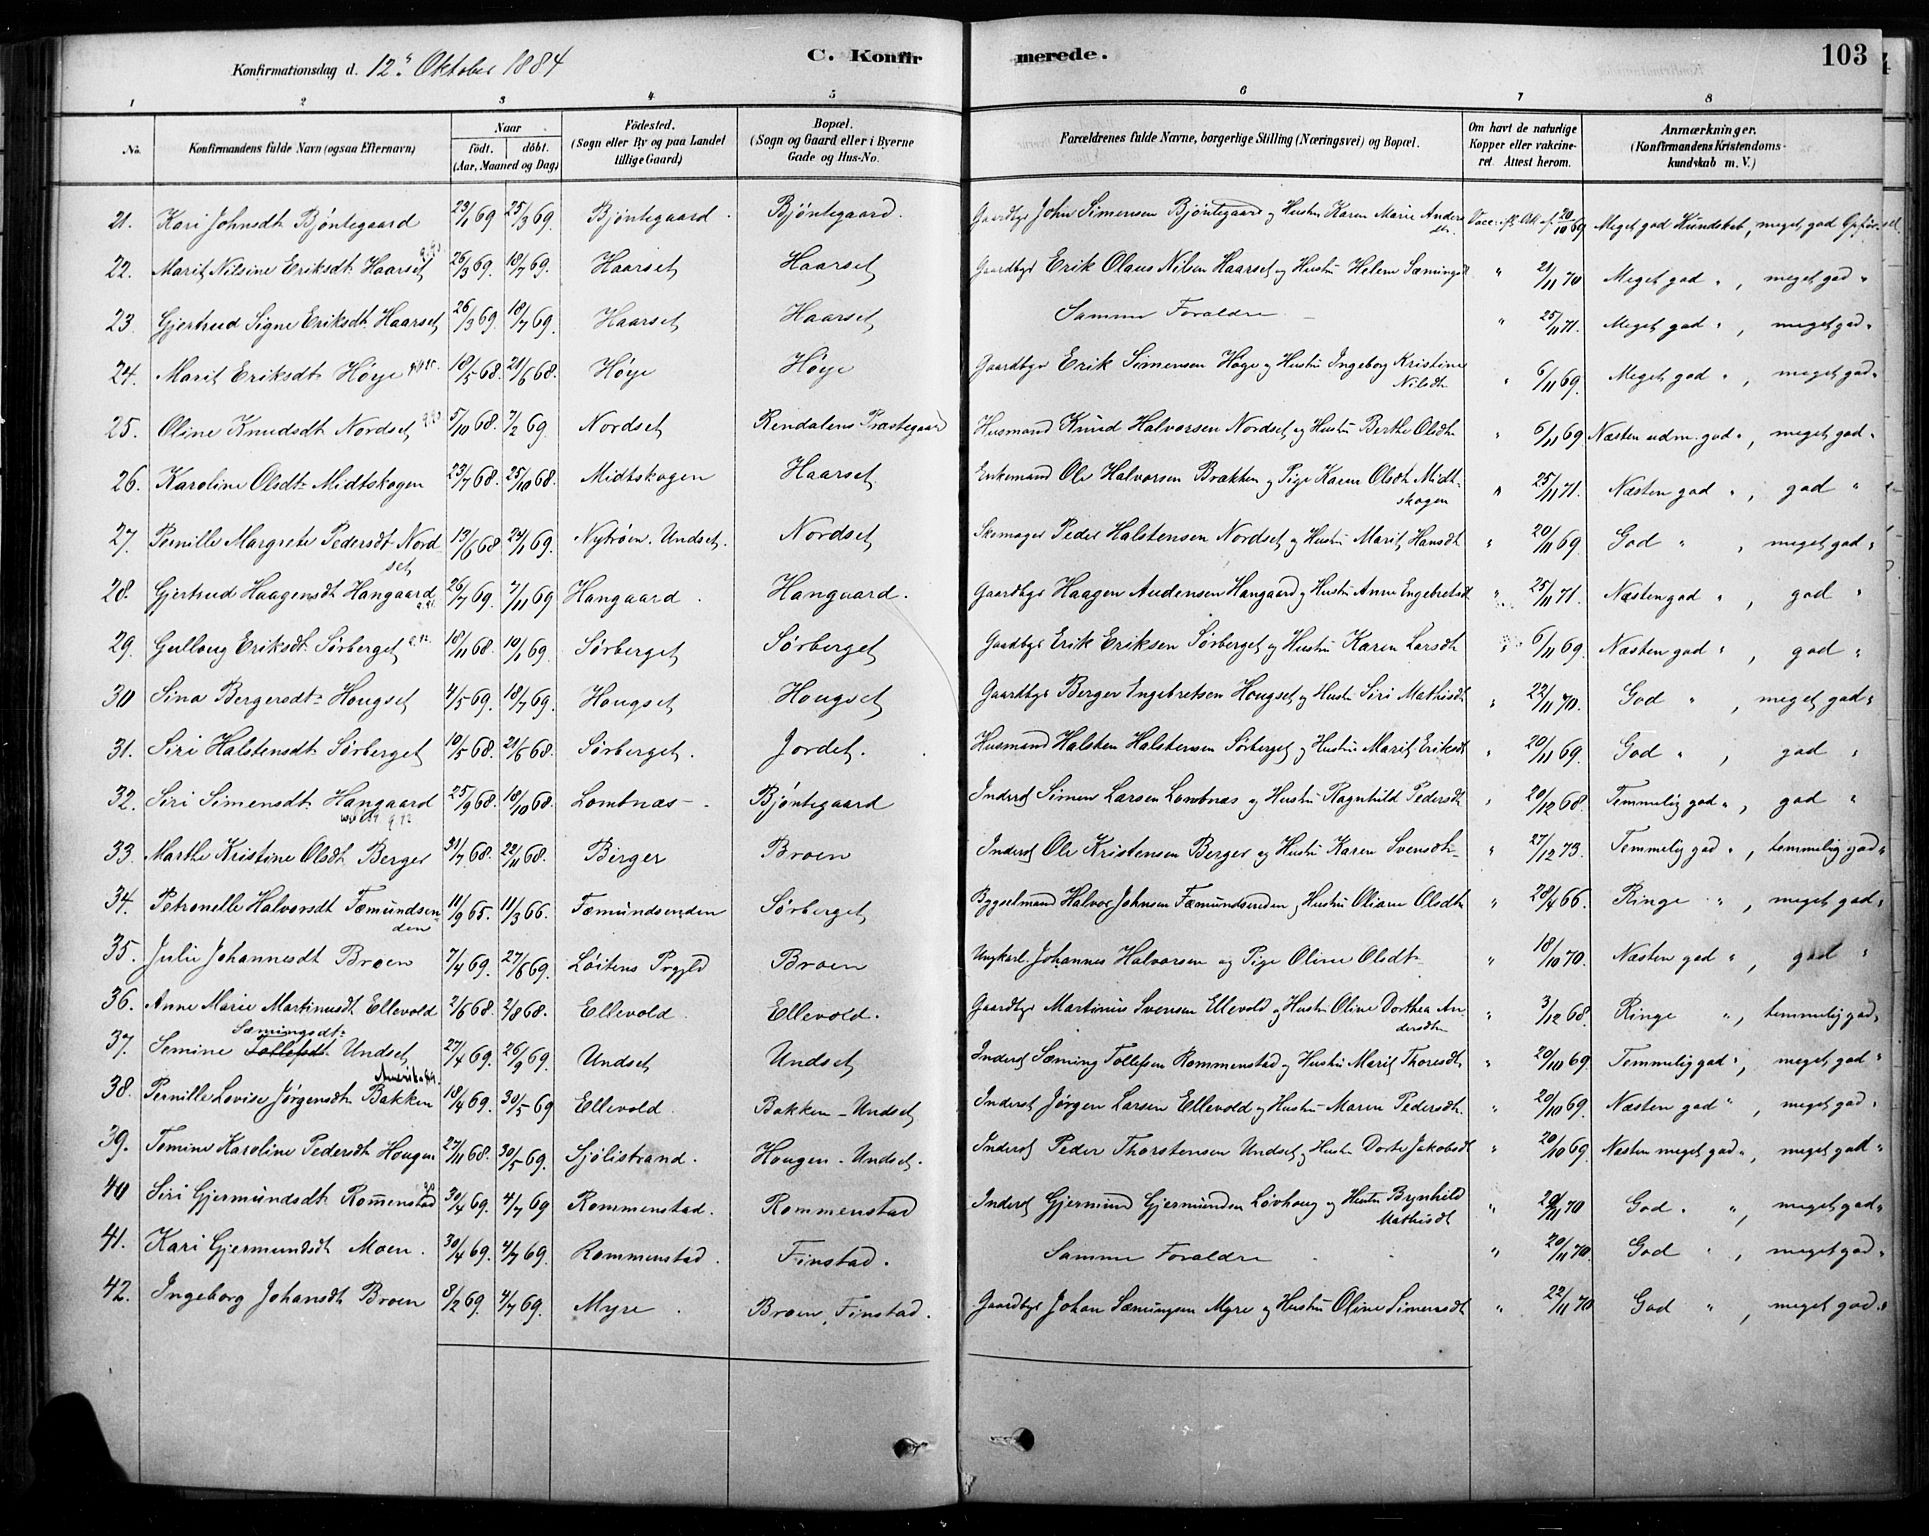 Konfirmationsdag d. 12te Oktober 1884 C. Konfirmerede. 103
1 2 3 4 5 6 7 8
No. Konfirmandens fulde Navn (ogsaa Efternavn) Naar födt. döbt. (Aar, Maaned og Dag) Födested. (Sogn eller By og paa Landet tillige Gaard) Bopæl. (Sogn og Gaard eller i Byerne Gade og Hus-No. Forældrenes fulde Navne, borgerlige Stilling (Næringsvei) og Bopæl. Om havt de naturlige Kopper eller vakcineret. Attest herom. Anmærkninger. (Konfirmandens Kristendomskundskab m. V.)
21. Kari Johnsdt Bjøntegaard 23/1 69 25/3 69. Bjöntegaard. Bjöntegaard. Gaardbgr John Simensen Bjöntegaard og Hustru Karen Marie Andersdt. Vacc. 20/10 69 Meget god Kundskab, meget god Opførsel.
22. Marit Nilsine Eriksdt Haarset 26/3 69. 18/7 69. Haarset Haarset Gaardbgr Erik Olaus Nilsen Haarset og Hustru Helene Sæmingsdt " 21/11 70 Meget god ", meget god "
23. Gjertrud Signe Eriksdt Haarset 26/3 69. 18/7 69. Haarset Haarset Samme Forældre " 25/11 71. Meget god ", meget god "
24. Marit Eriksdt Høye 18/5 68. 21/6 68. Høye Høye Gaardbgr Erik Simensen Høye og Hustru Ingeborg Kristine Nilsdt " 6/11 69. Meget god ", meget god "
25. Oline Knudsdt Nordset 5/10 68. 7/2 69. Nordset Rendalens Præstegaard Husmand Knud Halvorsen Nordset og Hustru Berthe Olsdtr " 6/11 69 Næsten udm. god ", meget god "
26. Karoline Olsdt Midtskogen 23/7 68. 25/10 68. Midtskogen Haarset Enkemand Ole Halvorsen Brækken og Pige Karen Olsdt Midtskogen " 25/11 71. Næsten god ", god "
27. Pernille Margrete Pedersdt Nordset 13/6 68. 24/1 69. Nytrøen. Undset. Nordset Skomager Peder Halstensen Nordset og Hustru Marit Hansdt " 20/11 69. God ", meget god "
28. Gjertrud Haagensdt Hangaard 26/7 69. 7/11 69 Hangaard. Hangaard. Gaardbgr Haagen Audensen Hangaard og Hustru Anne Engebretsdt " 25/11 71. Næsten god ", god "
29. Gullaug Eriksdt Sørberget 18/11 68. 10/1 69. Sørberget Sørberget Gaardbgr Erik Eriksen Sørberget og Hustru Karen Larsdtr " 6/11 69. Næsten god ", god "
30 Sina Bergersdt Hougset 4/5 69. 18/7 69. Hougset Hougset Gaardbgr Berger Engebretsen Hougset og Hustru Siri Mathisdt " 22/11 70. God ", meget god "
31. Siri Halstensdt Sørberget 10/5 68. 21/6 68. Sørberget. Jordet. Husmand Halsten Halstensen Sørberget og Hustru Marit Eriksdt " 20/11 69. God ", god "
32. Siri Simensdt Hangaard 25/9 68. 18/10 68. Lombnæs Bjöntegaard Inderst Simen Larsen Lombnæs og Hustru Ragnhild Pedersdt " 20/12 68. Temmelig god ", god "
33. Marthe Kristine Olsdt Berger 31/7 68. 22/11 68. Berger Broen Inderst Ole Kristensen Berger og Hustru Karen Svensdtr " 27/12 73. Temmelig god ", temmelig god "
34. Petronelle Halvorsdt Fæmundsenden 11/9 65. 11/3 66. Fæmundsenden Sørberget Bygselmand Halvor Johnsen Fæmundsenden og Hustru Oliane Olsdt " 28/4 66. Ringe ", meget god "
35. Julie Johannesdt Broen 7/4 69. 27/6 69. Løitens Prgjld Broen Ungkarl Johannes Halvorsen og Pige Oline Olsdt " 18/10 70. Næsten god ", god "
36. Anne Marie Martinusdt Ellevold 2/6 68. 2/8 68. Ellevold. Ellevold. Gaardbgr Martinus Svensen Ellevold og Hustru Oline Dorthea Andersdtr " 3/12 68. Ringe ", temmelig god "
37. Semine Tollefsdt Sæmingsdt Undset 27/4 69. 26/9 69. Undset Undset Inderst Sæming Tollefsen Rommenstad og Hustru Marit Thoresdt " 20/10 69 Temmelig god ", meget god "
38. Pernille Lovise Jørgensdt Bakken Amerika 18/4 69. 30/5 69 Ellevold. Bakken - Undset Inderst Jørgen Larsen Ellevold og Hustru Maren Pedersdt. " 20/10 69. Næsten god ", meget god "
39. Tomine Karoline Pedersdt Hougen 27/11 68. 30/5 69. Sjölistrand. Hougen - Undset. Inderst Peder Thorstensen Undset og Hustru Dorte Jakobsdt " 20/10 69. Næsten meget god ", meget god "
40 Siri Gjermundsdt Rommenstad 30/4 69. 4/7 69 Rommenstad. Rommenstad Inderst Gjermund Gjermundsen Lövhoug og Hustru Brynhild Mathisdt " 20/11 70 God ", meget god "
41. Kari Gjermundsdt Moen. 30/4 69. 4/7 69. Rommenstad. Finstad. Samme Forældre " 20/11 70. God ", meget god "
42. Ingeborg Johansdt Broen 8/2 69. 4/7 69. Myre. Broen, Finstad. Gaardbgr Johan Sæmingsen Myre og Hustru Oline Simensdt " 22/11 70. God ", meget god "